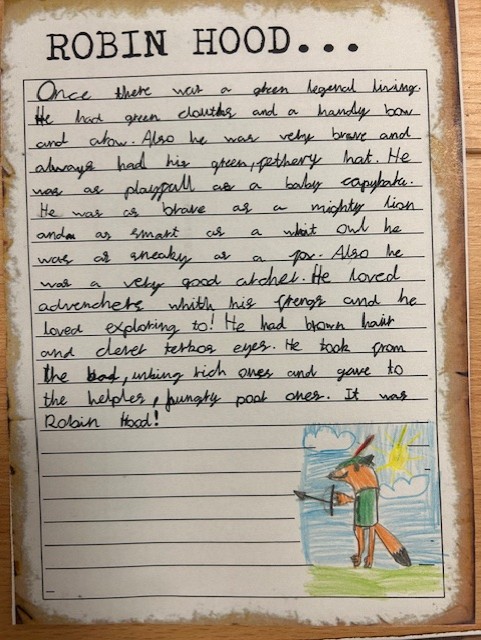 ROBIN HOOD...
Once there was a green legend living.
He had green clouths and a handy bow
and arow. Also he was very brave and
always had his green, fethery hat. He
was as playfull as a baby capybara.
He was as brave as a mighty lion
and as smart as a whit owl he
was as sneaky as a fox. Also he
was a very good archer. He loved
advenchers whith his frengs and he
loved exploring to! He had brown hair
and clever eyes. He took from
the bad, rich ones and gave to
the helples, hungry poor ones. It was
Robin Hood!